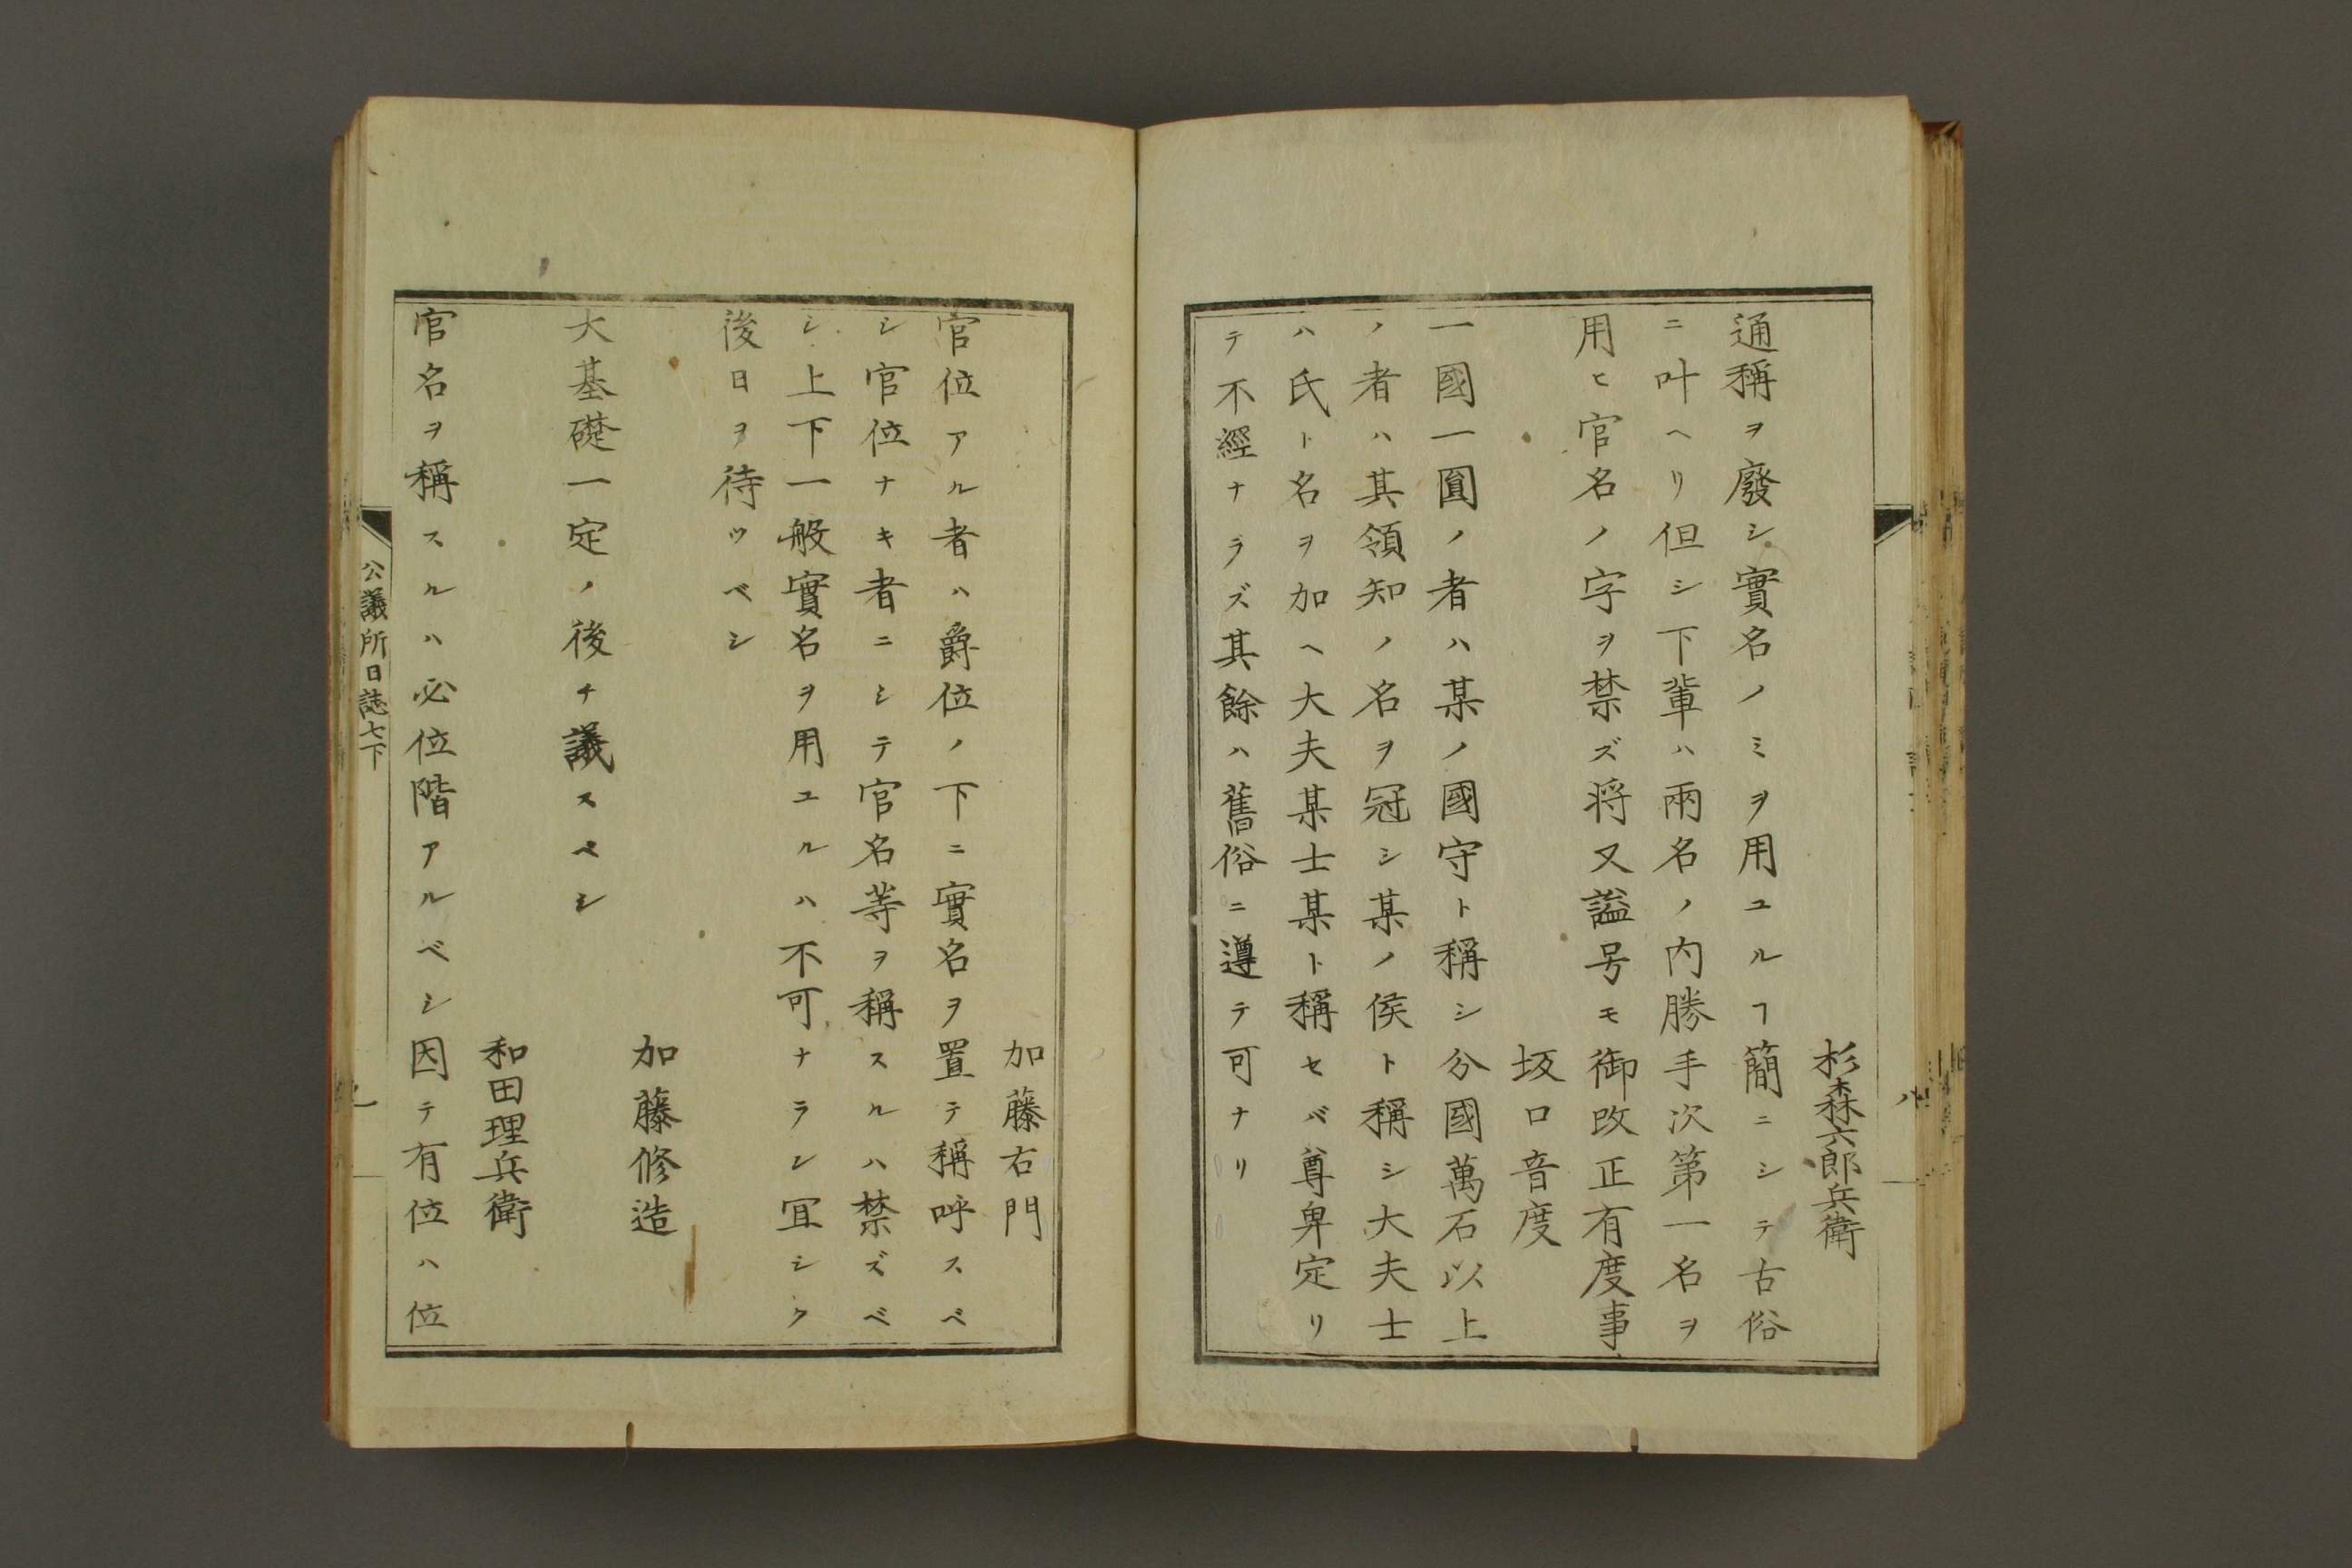 杉森六郎兵衛
通稱ヲ廢シ實名ノミヲ用ユルヿ簡ニシテ古俗
ニ叶ヘリ但シ下輩ハ兩名ノ内勝手次第一名ヲ
用ヒ官名ノ字ヲ禁ズ将又謚号モ御改正有度事
坂口音度
一國一圓ノ者ハ某ノ國守ト稱シ分國萬石以上
ノ者ハ其領知ノ名ヲ冠シ某ノ侯ト稱シ大夫士
ハ氏ト名ヲ加ヘ大夫某士某ト稱セバ尊卑定リ
テ不經ナラズ其餘ハ舊俗ニ遵テ可ナリ
八
加藤右門
官位アル者ハ爵位ノ下ニ實名ヲ置テ稱呼スベ
シ官位ナキ者ニシテ官名等ヲ稱スルハ禁ズベ
シ上下一般實名ヲ用ユルハ不可ナラン冝シク
後日ヲ待ツベシ
加藤修造
大基礎一定ノ後チ議スベシ
和田理兵衛
官名ヲ稱スルハ必位階アルベシ因テ有位ハ位
公議所日誌七下